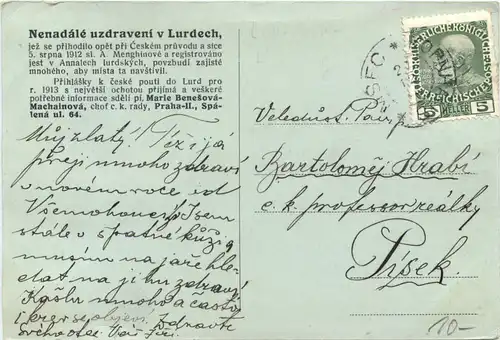 Nenadálé uzdravení v Lurdech,
jež se přihodilo opět při Českém průvodu a sice
5. srpna 1912 sl. A. Menghinové a registrováno
jest v Annalech lurdských, povzbudí zajisté
mnohého, aby místa ta navštívil.
Přihlášky k české pouti do Lurd pro
r. 1913 s největší ochotou přijímá a veškeré
potřebné informace sdělí pí. Marie Benešová-
Machainová, choť c. k. rady, Praha-II., Spá-
lená ul. 64.
Můj zlatý! Též i já
přeji mnoho zdraví
v novém roce od
Všemohoucího. Jsem
stále v špatné kůži a
musím na jaře hle-
dat na jihu zdraví.
Kašlu mnoho a často
i krev se objeví. Zdravte
Veledůst. Pán, p.
Bartoloměj Hrabí
c. k. professor reálky
Písek.
5 HELLER 5
10-